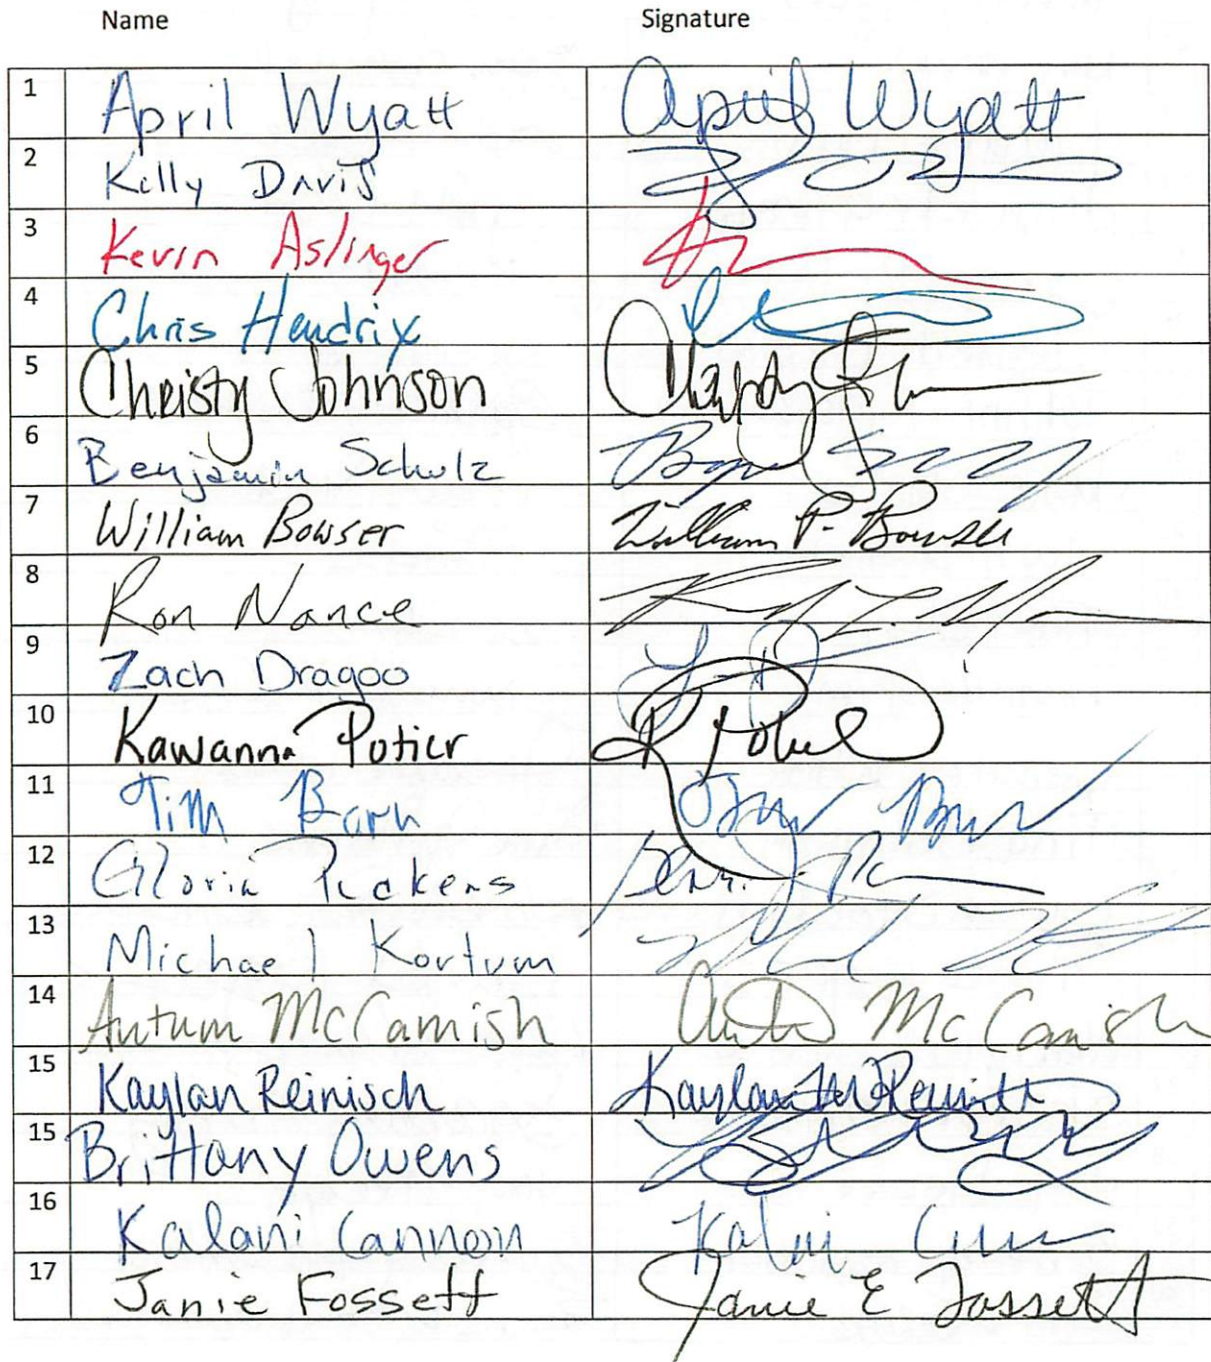 Name Signature
1 April Wyatt April Wyatt
2 Kelly Davis
3 Kevin Aslinger
4 Chris Hendrix
5 Christy Johnson Christy
6 Benjamin Schulz
7 William Bowser William P. Bowser
8 Ron Nance
9 Zach Dragoo
10 Kawanna Potier
11 Tim Born
12 Gloria Pickens
13 Michael Kortum
14 Autum McCamish McCamish
15 Kaylan Reinisch Kaylan
15 Brittany Owens
16 Kalani Cannon
17 Janie Fossett Janie E Fossett